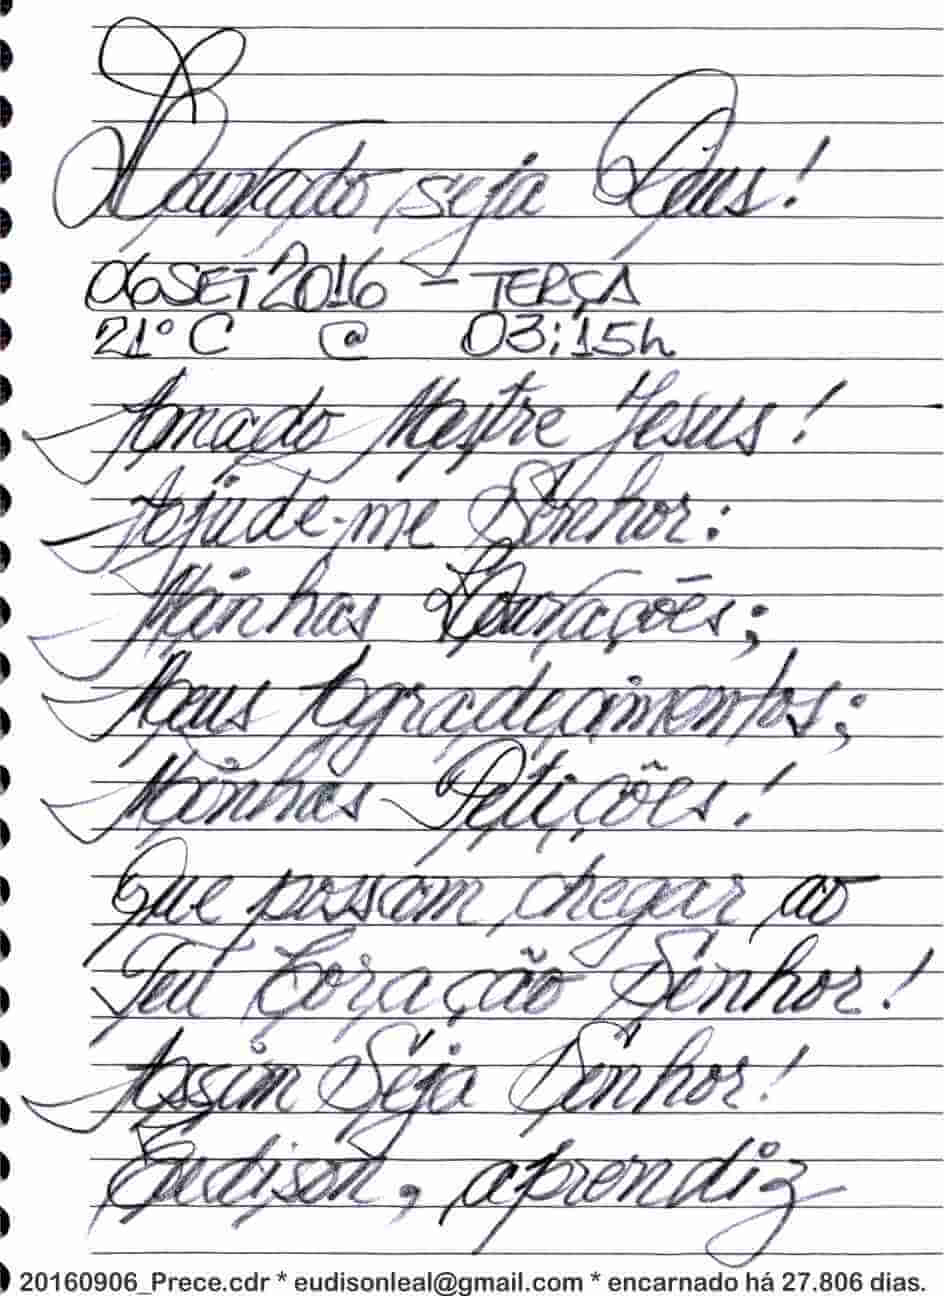 Louvado seja Deus!
06 SET 2016 - TERÇA
21° C @ 03:15h
Amado Mestre Jesus!
Ajude-me Senhor:
Minhas Louvações;
Meus Agradecimentos;
Minhas Petições!
Que possam chegar ao
Teu Coração Senhor!
Assim Seja Senhor!
Eudison, aprendiz
20160906_Prece.cdr * eudisonleal@gmail.com * encarnado há 27.806 dias.